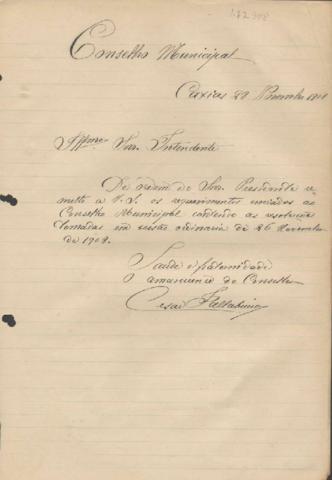 Conselho Municipal
Caxias 28 Novembro 1908
Illmo Snr. Intendente
De ordem do Snr. Presidente re-
metto a V. S. os requerimentos enviados ao
Conselho Municipal contendo as resoluções
tomadas em sessão ordinaria de 26 Novembro
de 1908.
Saude e fraternidade
O amanuense do Conselho
Cesar